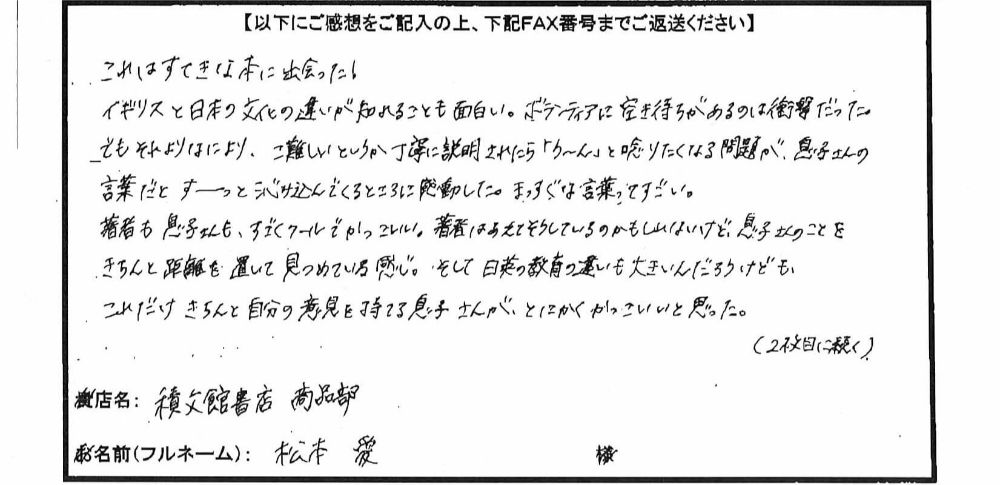 【以下にご感想をご記入の上、下記FAX番号までご返送ください】
これはすてきな本に出会った!
イギリスと日本の文化の違いが知れることも面白い。ボランティアに空き待ちがあるのは衝撃だった。
でもそれよりなにより、ご難しいというか丁寧に説明されたら「う~ん」と唸りたくなる問題が、息子さんの
言葉だと すーっと沁み込んでくるところに感動した。まっすぐな言葉ってすごい。
著者も息子さんも、すごくクールでかっこいい。著者はあえてそうしているのかもしれないけど、息子さんのことを
きちんと距離を置いて見つめている感じ。そして日英の教育の違いも大きいんだろうけども、
これだけ きちんと自分の意見を持てる息子さんが、とにかくかっこいいと思った。
(2枚目に続く)
貴店名: 積文館書店 商品部
お名前(フルネーム): 松本 愛 様